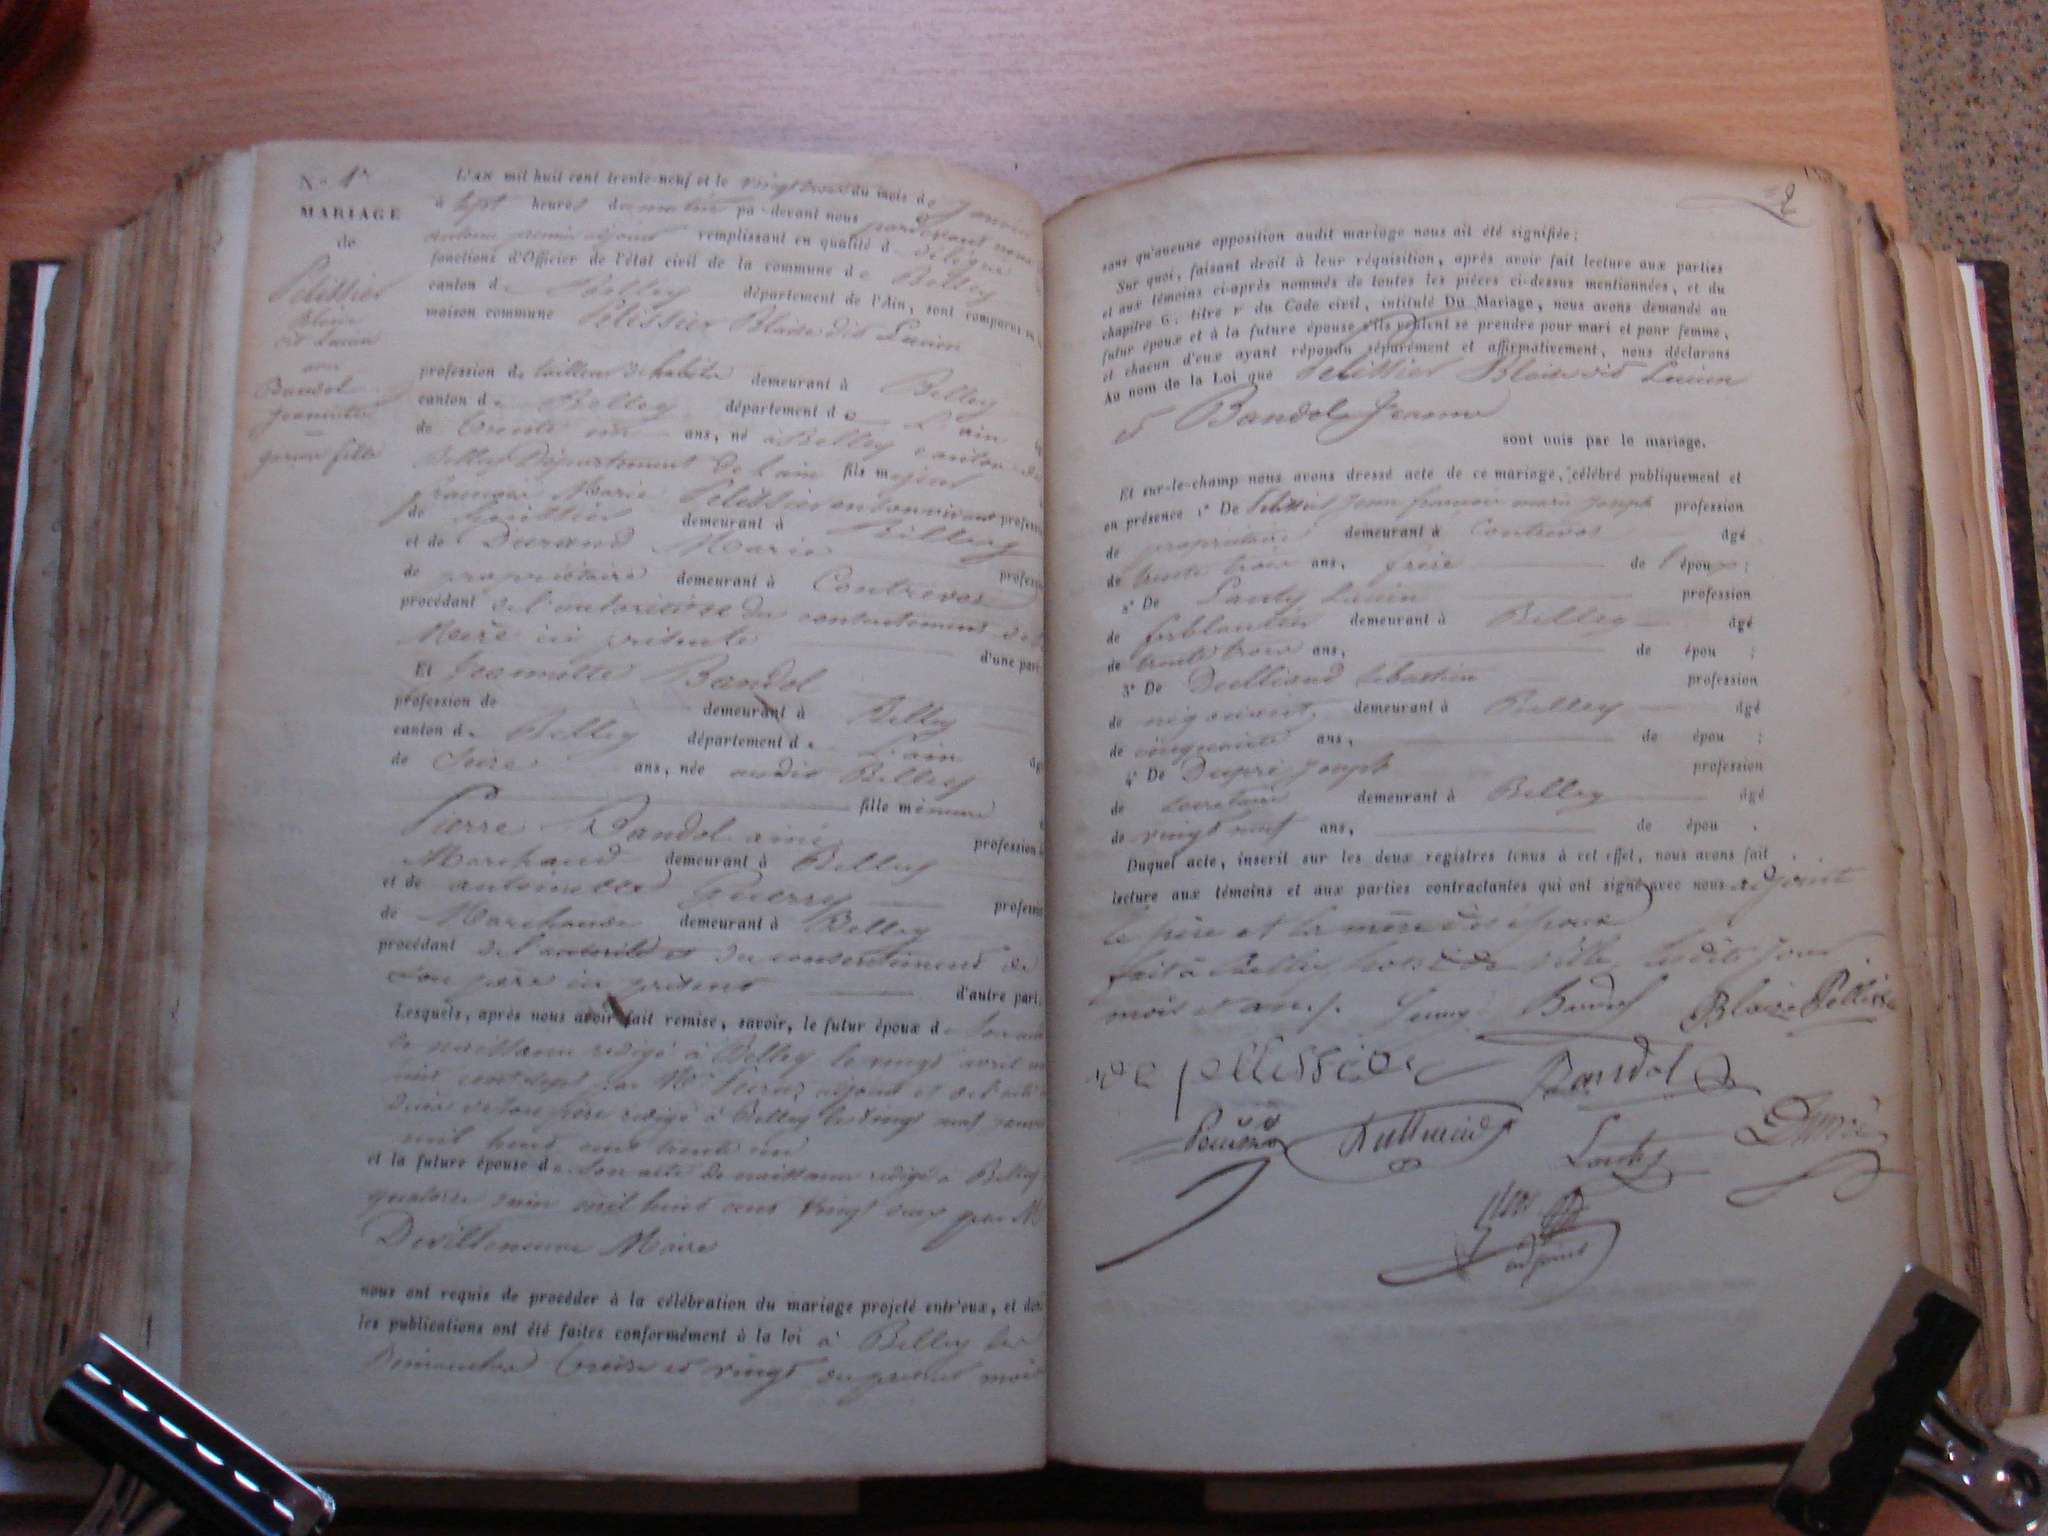 N° 1er
MARIAGE
de
Pelissier
Blaise
dit Lucien
avec
Bandol
Jeannette
garçon fille
L'an mil huit cent trente-neuf et le vingt trois du mois de janvier
à sept heures du matin par-devant nous
premier adjoint remplissant en qualité de délégué
fonctions d'Officier de l'état civil de la commune de Belley
canton de Belley département de l'Ain, sont comparus en la
maison commune Pelissier Blaise dit Lucien
profession de tailleur d'habits demeurant à Belley
canton de Belley département de L'ain
de trente un ans, né à Belley canton de
Belley Département de L'ain fils majeur
françois Marie Pelissier en son vivant profession
de demeurant à Belley
et de Durand Marie profession
de propriétaire demeurant à Contrevoz
procédant de l'autorité et du consentement de
Mère ici présente d'une part
Et Jeannette Bandol
profession de demeurant à Belley
canton de Belley département de L'ain
de Seize ans, née audit Belley
fille mineure
Pierre Bandol ainé profession
Marchand demeurant à Belley
et de antoinette Guerry profession
de Marchande demeurant à Belley
procédant de l'autorité et du consentement de
Son père ici présent d'autre part.
Lesquels, après nous avoir fait remise, savoir, le futur époux de Son acte
de naissance redigé à Belley le vingt avril
huit cent sept par Mr adjoint et de l'acte
de son père redigé à Belley le vingt neuf janvier
mil huit cent trente un
et la future épouse de Son acte de naissance redigé à Belley
quatorze juin mil huit cent vingt deux par Mr
Devilleneuve Maire
nous ont requis de procéder à la célébration du mariage projeté entr'eux, et dont
les publications ont été faites conformément à la loi à Belley les
Dimanches treize et vingt du présent mois
2
sans qu'aucune opposition audit mariage nous ait été signifiée;
Sur quoi, faisant droit à leur réquisition, après avoir fait lecture aux parties
et aux témoins ci-après nommés de toutes les pièces ci-dessus mentionnées, et du
chapitre 6, titre v du Code civil, intitulé Du Mariage, nous avons demandé au
futur époux et à la future épouse s'ils veulent se prendre pour mari et pour femme,
et chacun d'eux ayant répondu séparément et affirmativement, nous déclarons
Au nom de la Loi que Pelissier Blaise dit Lucien
et Bandol Jeanne
sont unis par le mariage.
Et sur-le-champ nous avons dressé acte de ce mariage, célébré publiquement et
en présence 1° De Pelissier Jean françois marie Joseph profession
de propriétaire demeurant à Contrevoz âgé
de trente trois ans, frère de l'époux;
2° De Lucien profession
de ferblantier demeurant à Belley âgé
de trente trois ans, de épou ;
3° De Sébastien profession
de négociant, demeurant à Belley âgé
de cinquante ans, de épou ;
4° De Dupré Joseph profession
de secretaire demeurant à Belley âgé
de vingt neuf ans, de épou .
Duquel acte, inscrit sur les deux registres tenus à cet effet, nous avons fait
lecture aux témoins et aux parties contractantes qui ont signé avec nous adjoint
le père et la mère des époux
fait à Belley hotel de ville lesdits jour
mois et an. Jeanne Bandol Blaise Pellissier
pellissier Bandol
adjoint